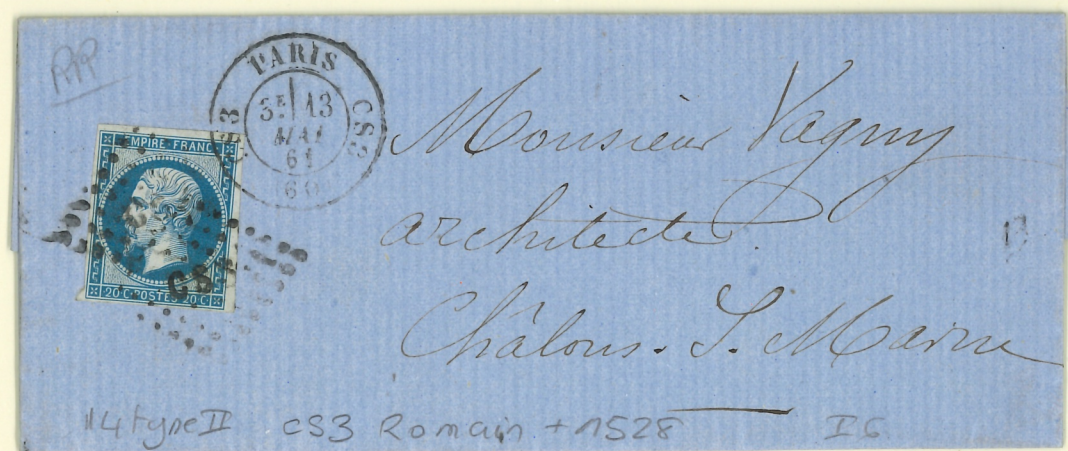 PARIS
CS3
3E 13
MAI
61
(60)
EMPIRE FRANC
CS3
20·C·POSTES·20·C·
Monsieur Vagny
architecte
Châlons. S. Marne
14 type II CS3 Romain + 1528 I6